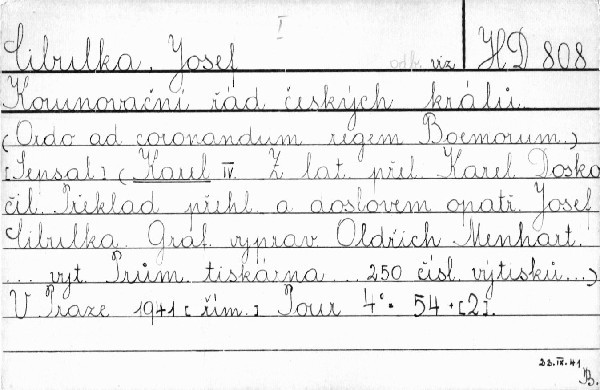 I
Cibulka, Josef viz HD 808
Korunovační řád českých králů.
(Ordo ad coronandum regem Boemorum.)
[Sensal] (Karel IV. Z lat. přel. Karel Dosko
čil. Překlad přehl. a doslovem opatř. Josef
Cibulka. Graf. vyprav Oldřich Menhart.
... vyt. Prům. tiskárna ... 250 čísl. výtisků...)
V Praze 1941 [řím.] Pour 4°. 54 + [2].
22.IX.41
B.